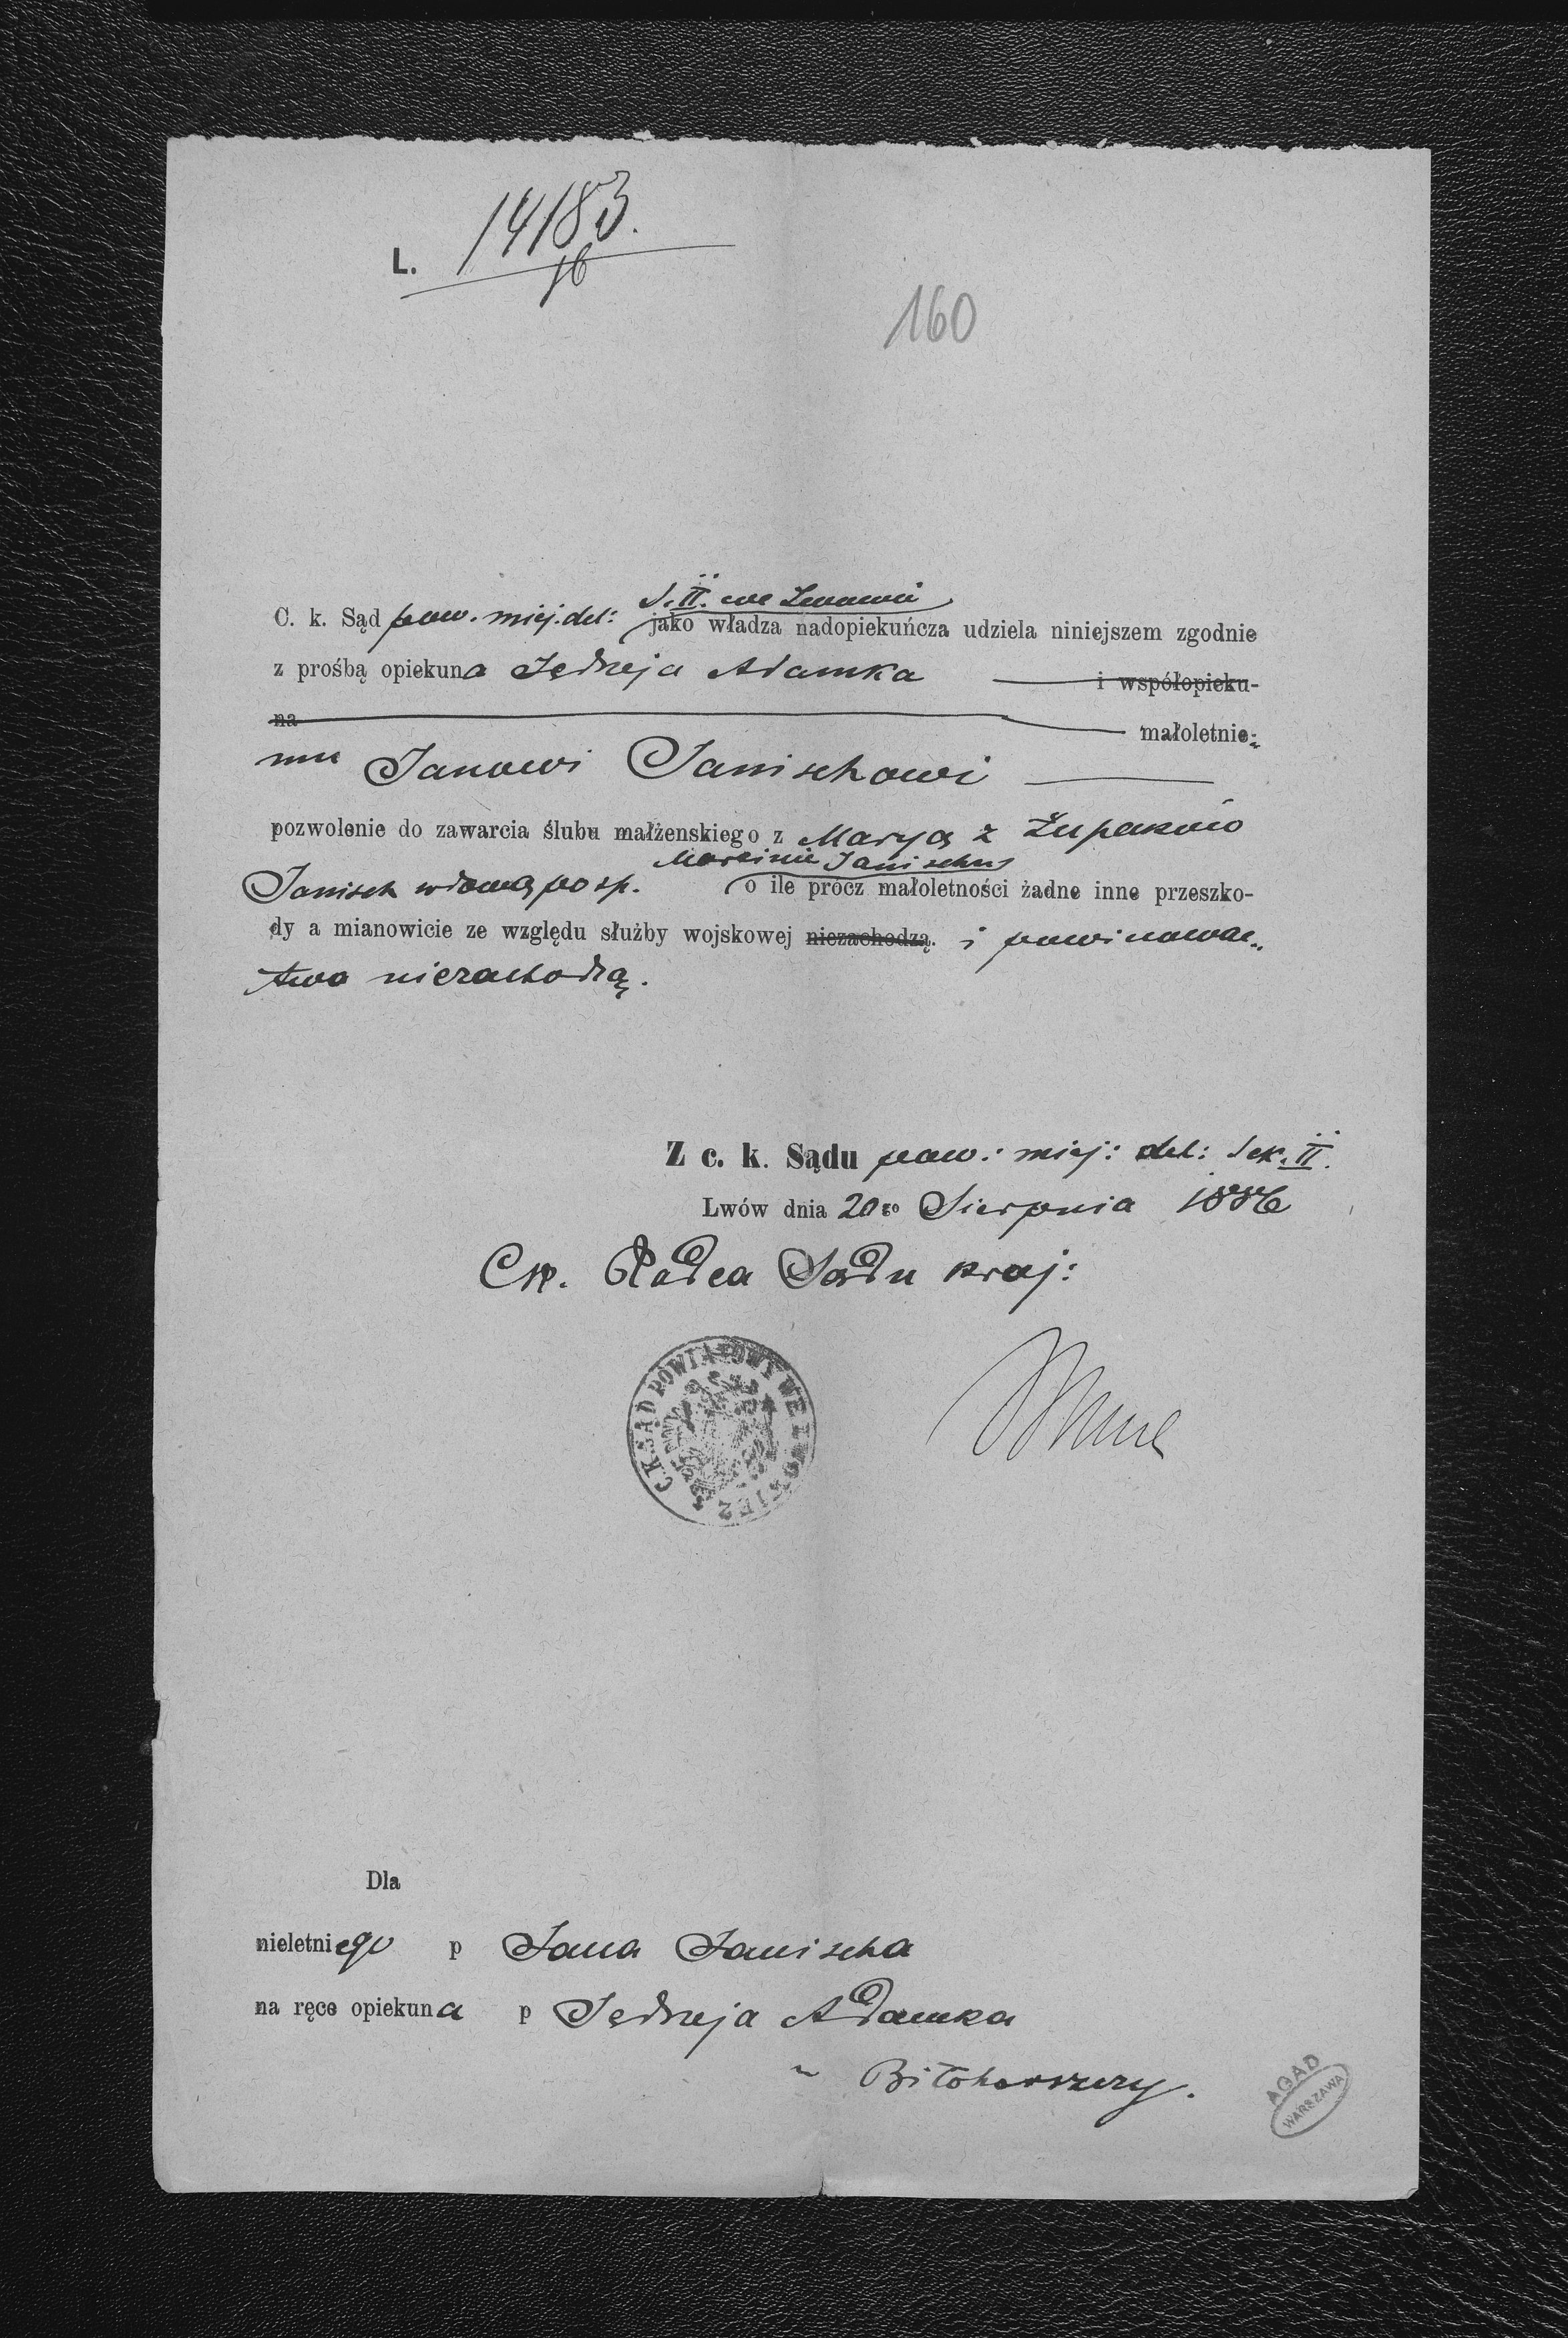 L. 14183.
86
160
S. II. we Lwowie
C. k. Sąd pow. miej. del: jako władza nadopiekuńcza udziela niniejszem zgodnie
z prośbą opiekuna Jędrzeja Adamka i współopieku-
na małoletnie-
mu Janowi Janischowi
pozwolenie do zawarcia ślubu małżenskiego z Maryą z Żupaków
Marcinie Janischu
Janisch wdową po śp. o ile prócz małoletności żadne inne przeszko-
dy a mianowicie ze względu służby wojskowej niezachodzą. i powinowac-
twa niezachodzą.
Z c. k. Sądu pow: miej: del: Sek. II.
Lwów dnia 20go Sierpnia 1886
Ck. Radca Sądu kraj:
CK SĄD POWIATOWY WE LWOWIE
Dla
nieletniego p Jana Janischa
na ręce opiekuna p Jędrzeja Adamka
w Biłohorszczy.
AGAD
WARSZAWA